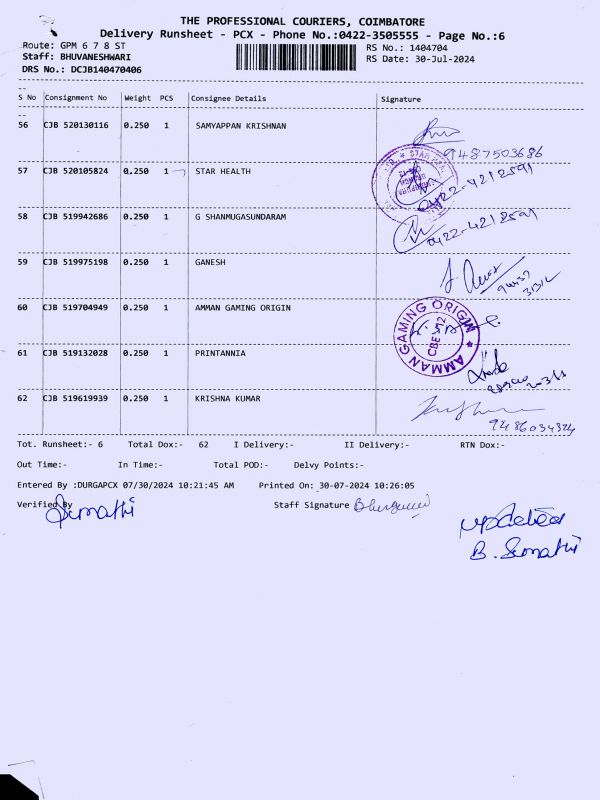 THE PROFESSIONAL COURIERS, COIMBATORE
Delivery Runsheet - PCX - Phone No.:0422-3505555 - Page No.:6
Route: GPM 6 7 8 ST RS No.: 1404704
Staff: BHUVANESHWARI RS Date: 30-Jul-2024
DRS No.: DCJB140470406
S No Consignment No Weight PCS Consignee Details Signature
56 CJB 520130116 0.250 1 SAMYAPPAN KRISHNAN
9487503686
57 CJB 520105824 0.250 1 STAR HEALTH
0422-4212591
58 CJB 519942686 0.250 1 G SHANMUGASUNDARAM
0422-4212591
59 CJB 519975198 0.250 1 GANESH
60 CJB 519704949 0.250 1 AMMAN GAMING ORIGIN
AMMAN GAMING ORIGIN
CBE-12
61 CJB 519132028 0.250 1 PRINTANNIA
62 CJB 519619939 0.250 1 KRISHNA KUMAR
9486034324
Tot. Runsheet:- 6 Total Dox:- 62 I Delivery:- II Delivery:- RTN Dox:-
Out Time:- In Time:- Total POD:- Delvy Points:-
Entered By :DURGAPCX 07/30/2024 10:21:45 AM Printed On: 30-07-2024 10:26:05
Verified By Staff Signature
Sumathi
updated
B. Sumathi